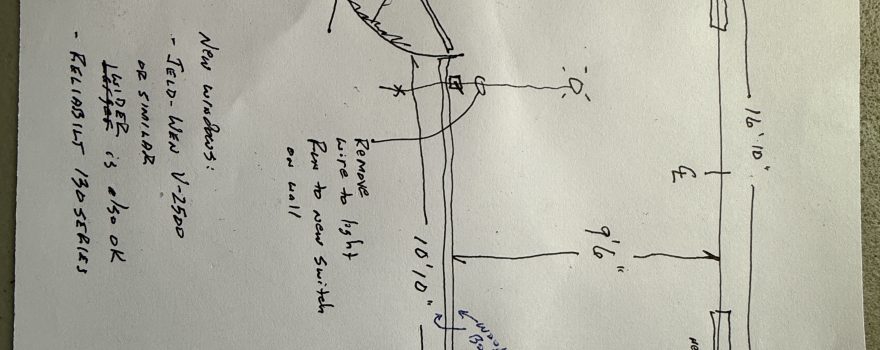 New windows:
- JELD-WEN V-2500
OR SIMILAR
WIDER is also OK
- RELIABILT 130 SERIES
Remove
wire to light
Run to new switch
on wall
10'10"
9'6"
16'10"
CL